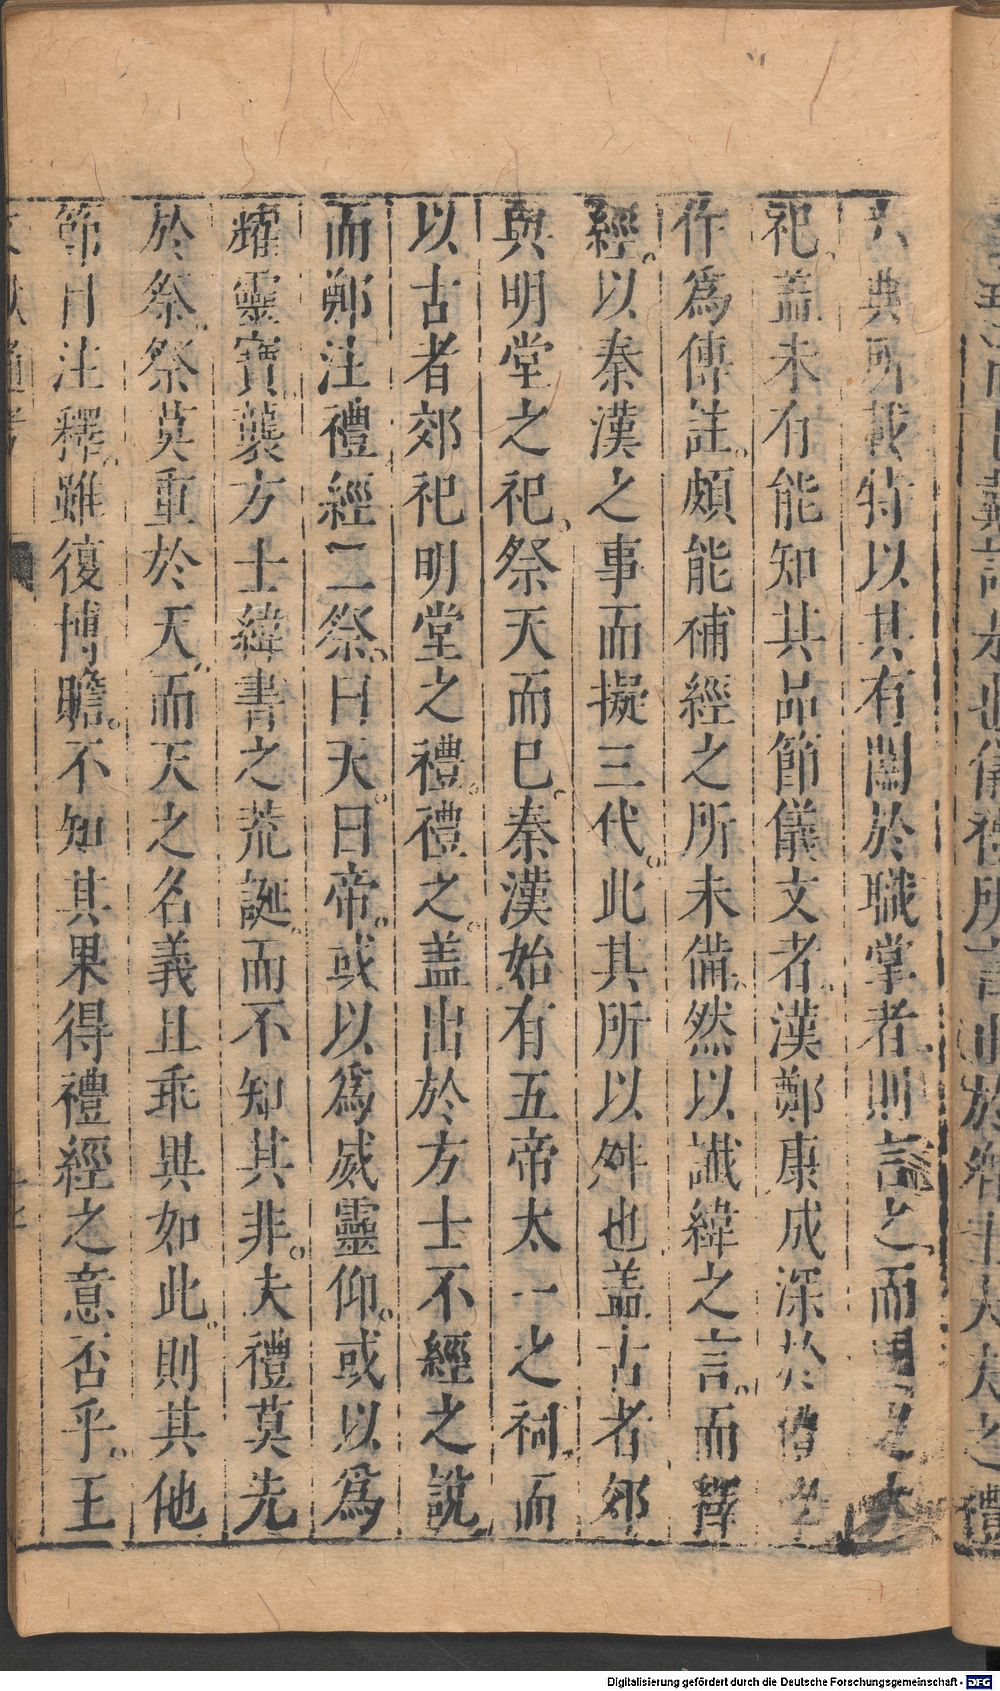 六典所載特以其有關於職掌者則言之而國之大
祀蓋未有能知其品節儀文者漢鄭康成深於禮學
作爲傳註頗能補經之所未備然以讖緯之言而釋
經以秦漢之事而擬三代此其所以舛也蓋古者郊
與明堂之祀祭天而已秦漢始有五帝太一之祠而
以古者郊祀明堂之禮禮之蓋出於方士不經之說
而鄭注禮經二祭曰天曰帝或以爲威靈仰或以爲
耀靈寶襲方士緯書之荒誕而不知其非夫禮莫先
於祭祭莫重於天而天之名義且乖異如此則其他
節目注釋雖復博贍不知其果得禮經之意否乎王
Digitalisierung gefördert durch die Deutsche Forschungsgemeinschaft - DFG